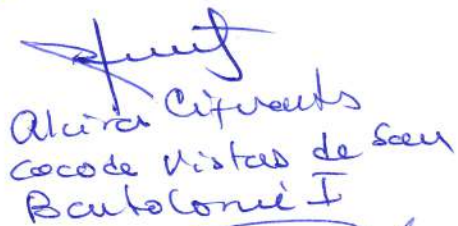 Alcira Cifuentes
cocode Vistas de San
Bartolomé I